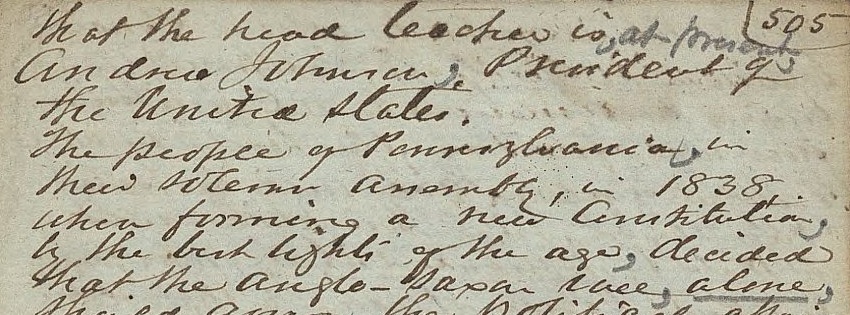 505
that the head teacher is, at present,
Andrew Johnson, President of
the United States.
The people of Pennsylvania, in
their solemn assembly, in 1838,
when forming a new Constitution,
by the best lights of the age, decided
that the Anglo-Saxon race, alone,
the Political